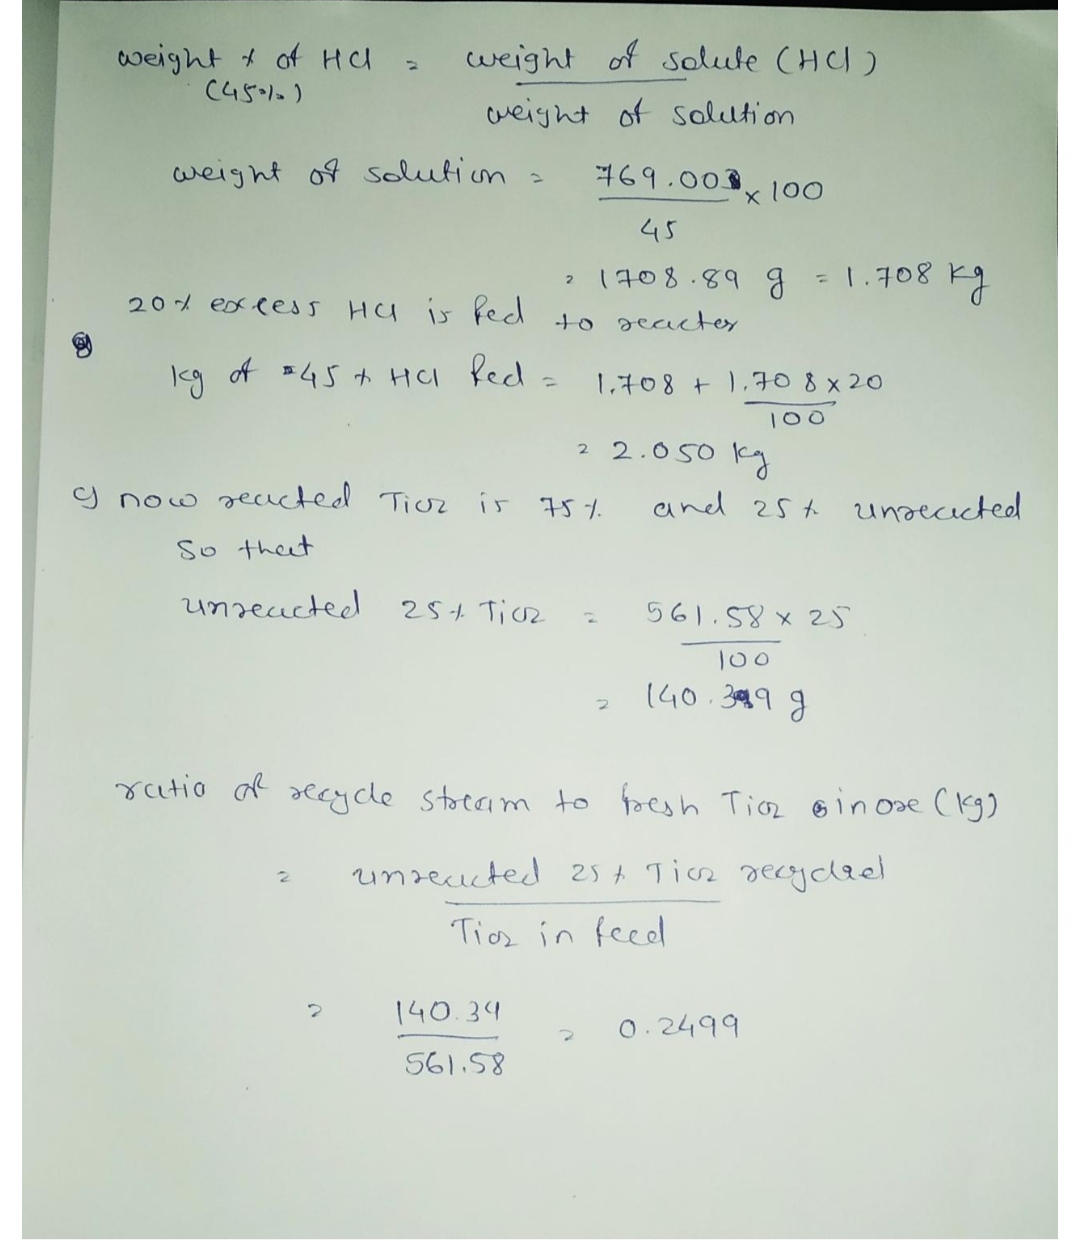 weight % of HCl = weight of solute (HCl)
(45%)
weight of solution
weight of solution = 769.003 x 100
45
= 1708.89 g = 1.708 kg
20% excess HCl is fed to reactor
kg of 45% HCl fed = 1.708 + 1.708 x 20
100
= 2.050 kg
c) now reacted TiO2 is 75% and 25% unreacted
so that
unreacted 25% TiO2 = 561.58 x 25
100
= 140.39 g
ratio of recycle stream to fresh TiO2 in ore (kg)
= unreacted 25% TiO2 recycled
TiO2 in feed
= 140.34 = 0.2499
561.58